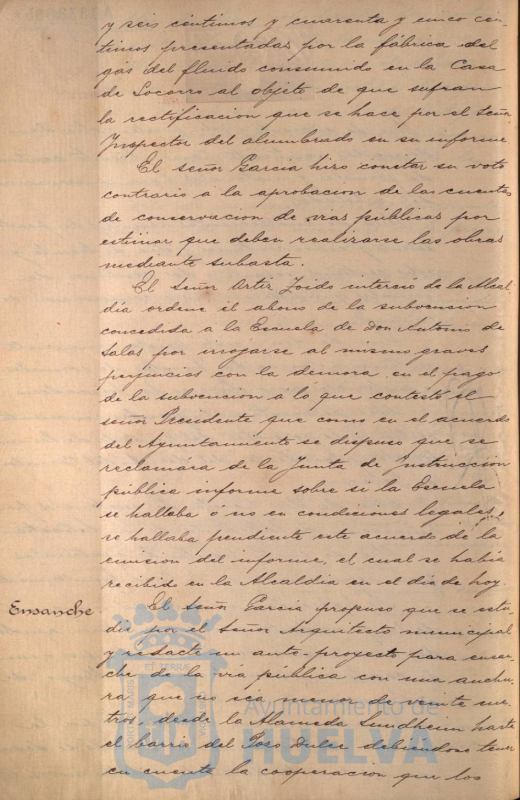 y seis céntimos y cuarenta y cinco cén-
timos presentadas por la fábrica del
gas del fluido consumido en la Casa
de Socorro al objeto de que sufran
la rectificacion que se hace por el señor
Inspector del alumbrado en su informe
El señor Garcia hizo constar su voto
contrario a la aprobacion de las cuentas
de conservacion de vias públicas por
estimar que deben realizarse las obras
mediante subasta.
El señor Ortiz Zoido interesó de la Alcal-
dia ordene el abono de la subvencion
concedida a la Escuela de Don Antonio de
Salas por irrogarse al mismo graves
perjuicios con la demora en el pago
de la subvencion á lo que contestó el
señor Presidente que como en el acuerdo
del Ayuntamiento se dispuso que se
reclamára de la Junta de Instruccion
pública informe sobre si la Escuela
se hallaba ó no en condiciones legales,
se hallaba pendiente este acuerdo de la
emision del informe, el cual se habia
recibido en la Alcaldia en el dia de hoy.
Ensanche
El señor Garcia propuso que se estu-
die por el señor Arquitecto municipal
y redacte un ante-proyecto para ensan-
che de la via pública con una anchu-
ra que no sea menor de veinte me-
tros, desde la Alameda Sundheim hasta
el barrio del Pozo Dulce debiendose tener
en cuenta la cooperacion que los
Ayuntamiento de
HUELVA